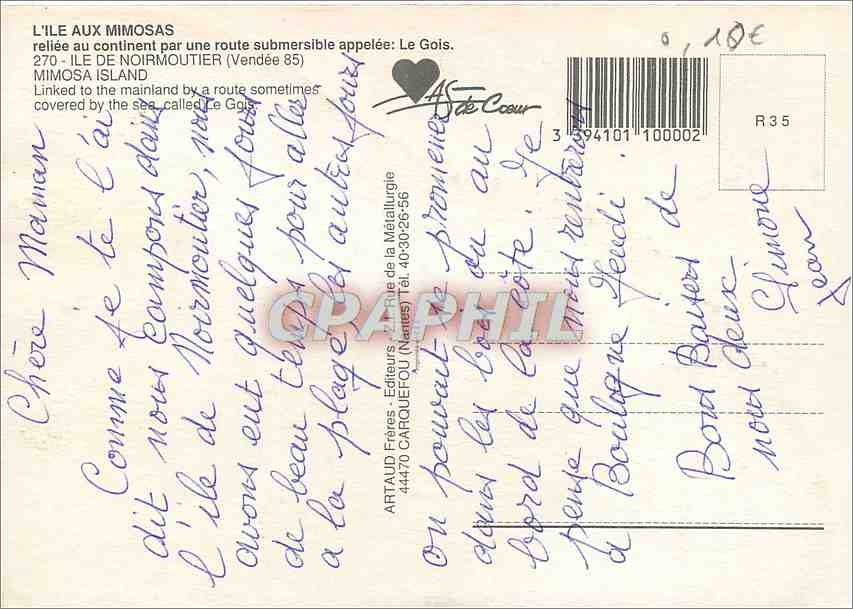 L'ILE AUX MIMOSAS
reliée au continent par une route submersible appelée: Le Gois.
270 - ILE DE NOIRMOUTIER (Vendée 85)
MIMOSA ISLAND
Linked to the mainland by a route sometimes
covered by the sea, called Le Gois.
As de Cœur
3 394101 100002
0,10€
R35
ARTAUD Frères - Editeurs - 21, Rue de la Métallurgie
44470 CARQUEFOU (Nantes) Tél. 40-30-26-56
CPAPHIL
Chère Maman
Comme je te l'ai
dit nous campons dans
l'île de Noirmoutier, nous
avons eut quelques jours
de beau temps pour aller
a la plage, les autres jours
on pouvait se promener
dans les bois ou au
bord de la côte. Je
pense que nous rentrerons
a Boulogne Jeudi.
Bons Baisers de
nous deux.
Simone
Jean